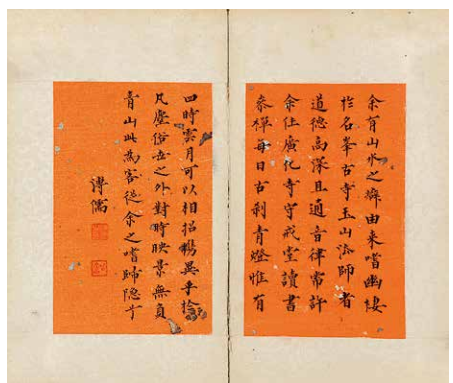 余有山水之癖由来嗜幽棲
於名峯古寺玉山法師者
道德高深且通音律常許
余住廣化寺守戒室讀書
叅禪每日古刹青燈惟有
四時雲月可以相招携異乎拾
凡塵俗忘之外對時映景無負
青山此為客從余之嗜歸隐乎
溥儒